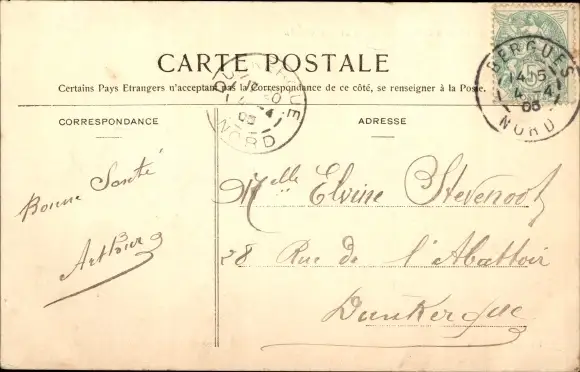 CARTE POSTALE
Certains Pays Etrangers n'acceptant pas la Correspondance de ce côté, se renseigner à la Poste.
CORRESPONDANCE
ADRESSE
Bonne Santé
Arthur
Melle Elvire Stevenoot
28 Rue de l'Abattoir
Dunkerque
BERGUES
14 15
4 -4
06
NORD
4
06
NORD